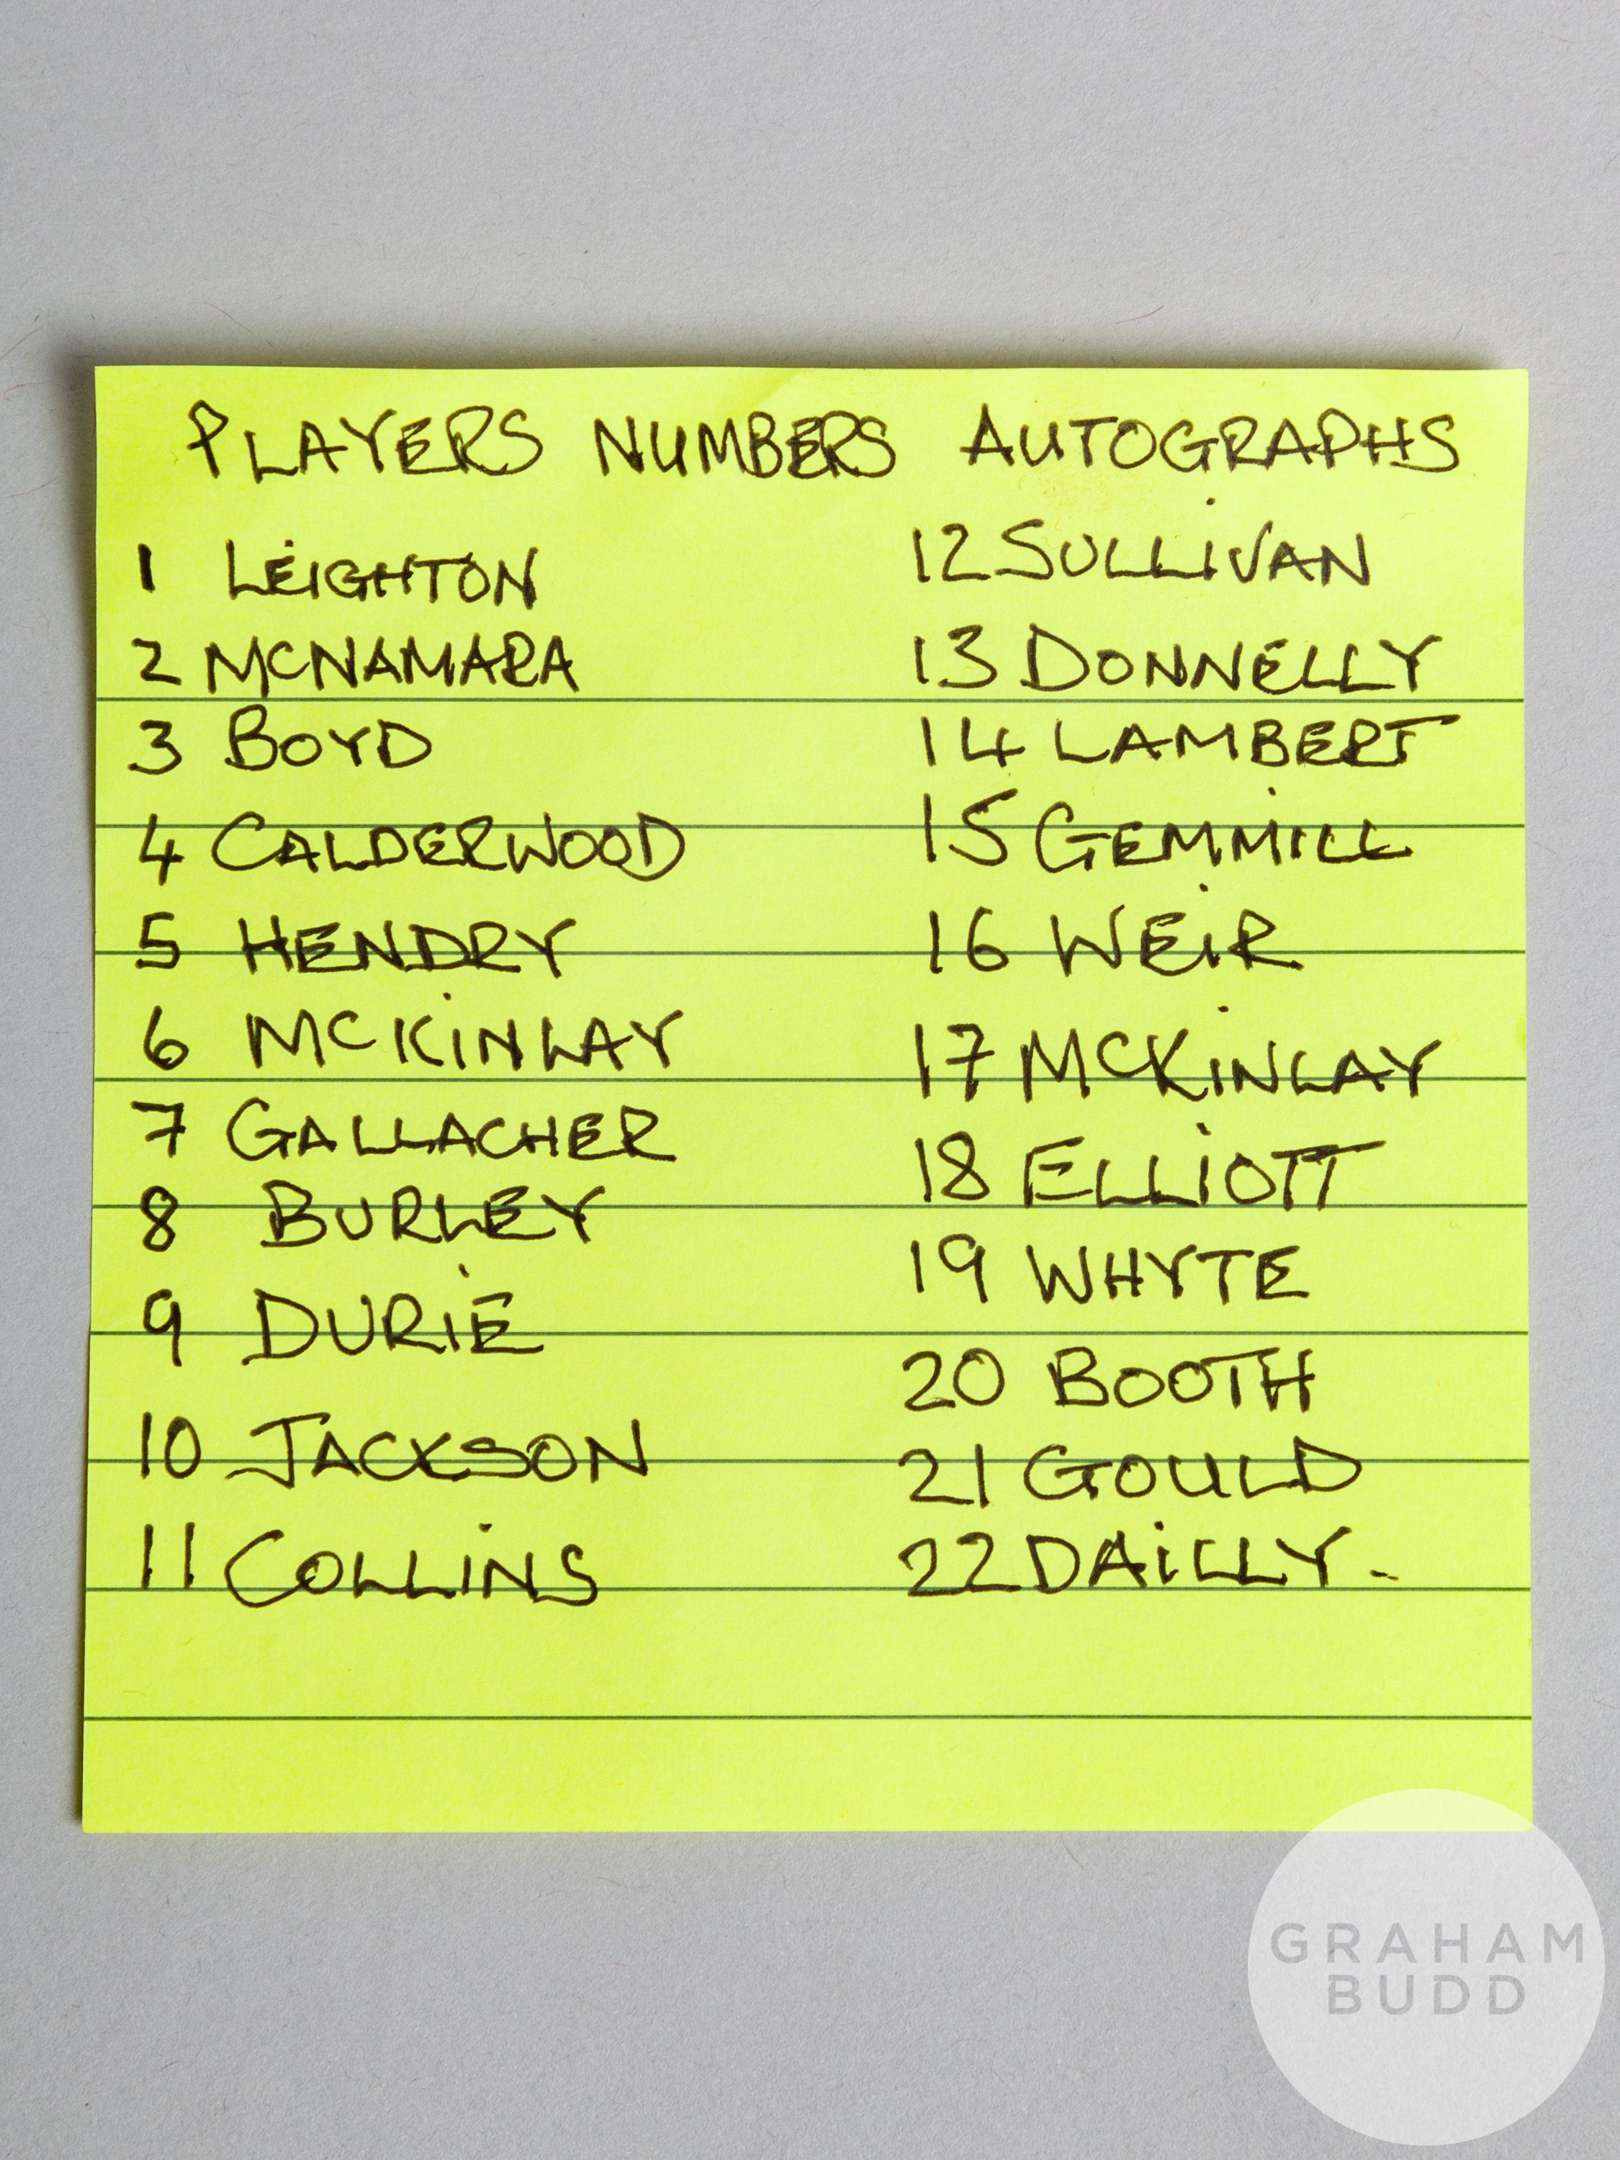 PLAYERS NUMBERS AUTOGRAPHS
1 LEIGHTON
2 MCNAMARA
3 BOYD
4 CALDERWOOD
5 HENDRY
6 MCKINLAY
7 GALLACHER
8 BURLEY
9 DURIE
10 JACKSON
11 COLLINS
12 SULLIVAN
13 DONNELLY
14 LAMBERT
15 GEMMILL
16 WEIR
17 MCKINLAY
18 ELLIOTT
19 WHYTE
20 BOOTH
21 GOULD
22 DAILLY.
GRAHAM
BUDD